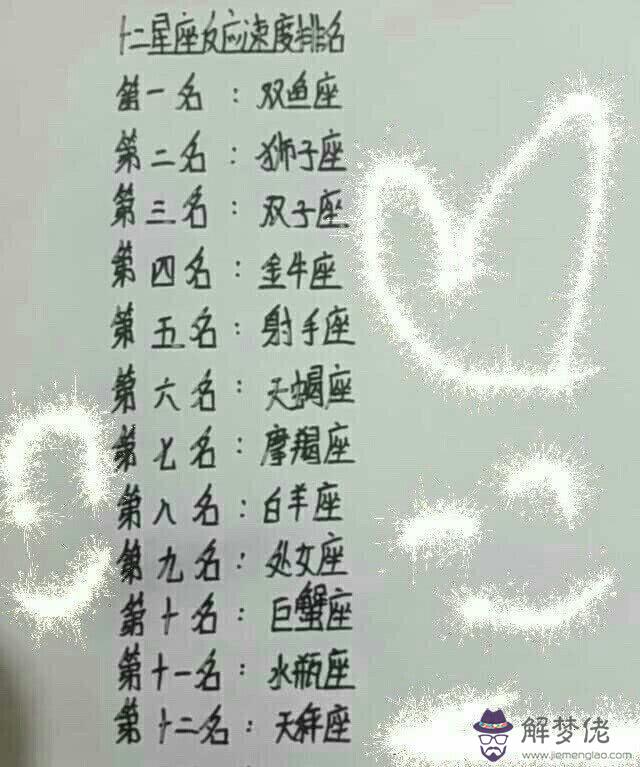 十二星座反应速度排名
第一名：双鱼座
第二名：狮子座
第三名：双子座
第四名：金牛座
第五名：射手座
第六名：天蝎座
第七名：摩羯座
第八名：白羊座
第九名：处女座
第十名：巨蟹座
第十一名：水瓶座
第十二名：天秤座
解梦佬
www.jiemenglao.com